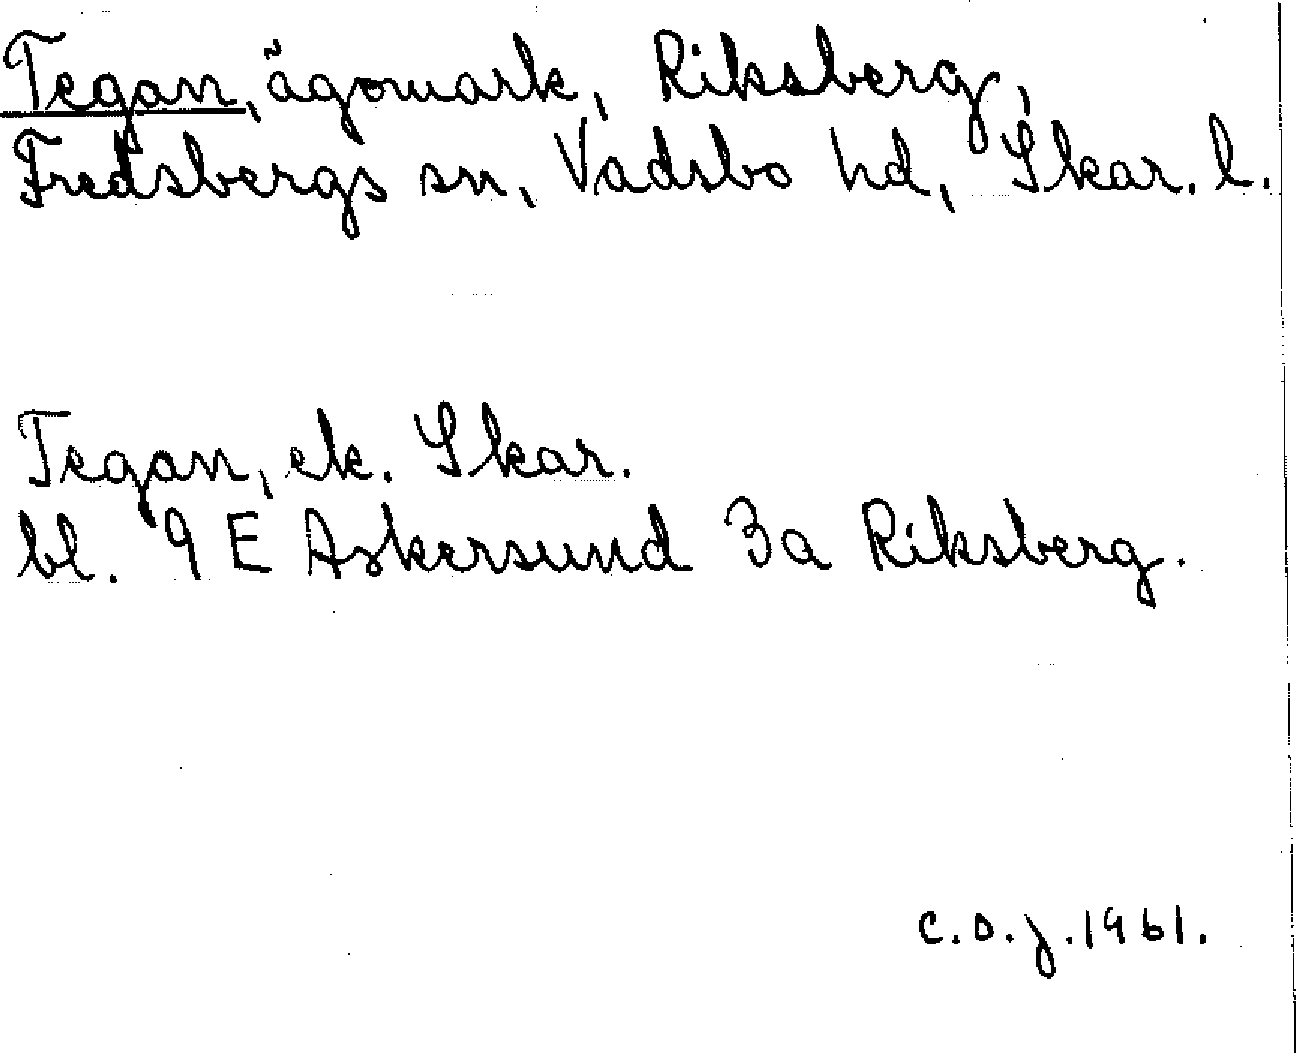 Tegan, ägomark, Riksberg,
Fredsbergs sn, Vadsbo hd, Skar. l.
Tegan, ek. Skar.
bl. 9 E Askersund 3a Riksberg.
C.O.J. 1961.